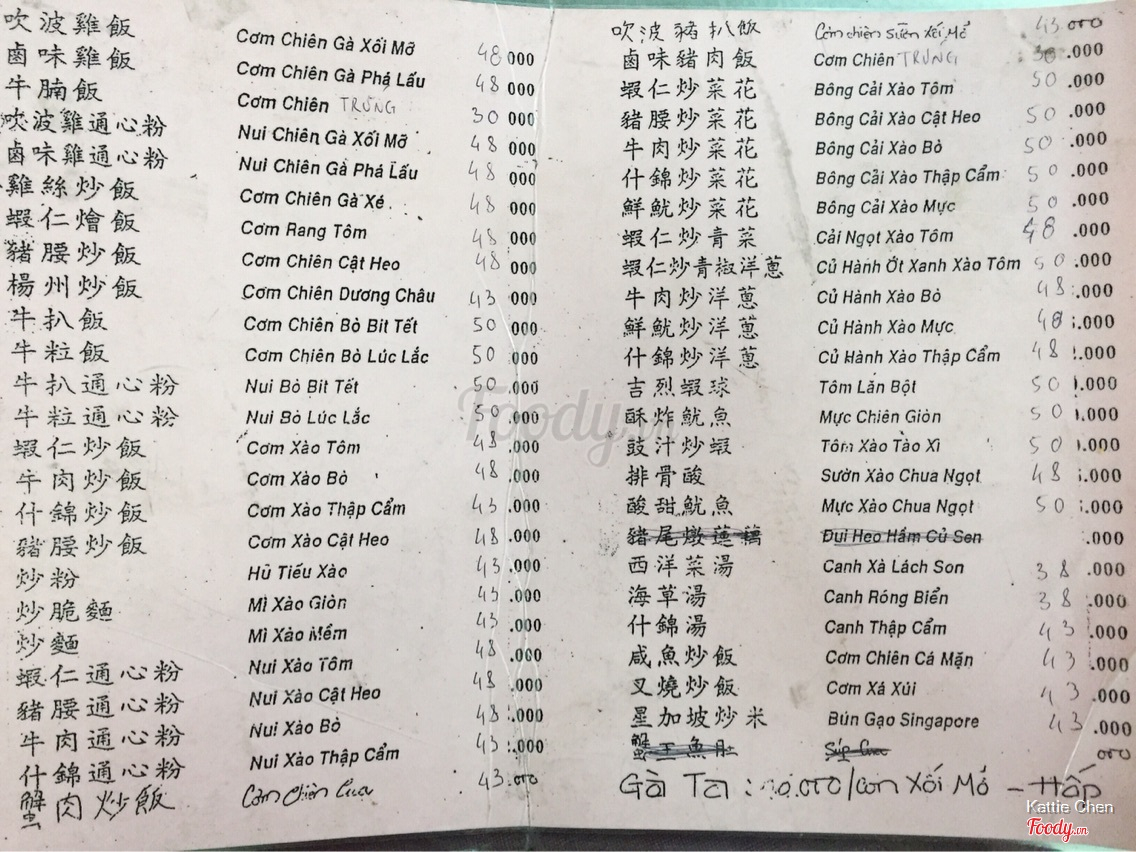 吹波雞飯 Cơm Chiên Gà Xối Mỡ 48 000
鹵味雞飯 Cơm Chiên Gà Phá Lấu 48 000
牛腩飯 Cơm Chiên TRỨNG 30 000
吹波雞通心粉 Nui Chiên Gà Xối Mỡ 48 000
鹵味雞通心粉 Nui Chiên Gà Phá Lấu 48 000
雞絲炒飯 Cơm Chiên Gà Xé 48 000
蝦仁燴飯 Cơm Rang Tôm 48 000
豬腰炒飯 Cơm Chiên Cật Heo 48 000
楊州炒飯 Cơm Chiên Dương Châu 43 000
牛扒飯 Cơm Chiên Bò Bít Tết 50 000
牛粒飯 Cơm Chiên Bò Lúc Lắc 50 000
牛扒通心粉 Nui Bò Bít Tết 50 .000
牛粒通心粉 Nui Bò Lúc Lắc 50 .000
蝦仁炒飯 Cơm Xào Tôm 48 .000
牛肉炒飯 Cơm Xào Bò 48 .000
什錦炒飯 Cơm Xào Thập Cẩm 43 .000
豬腰炒飯 Cơm Xào Cật Heo 48 .000
炒粉 Hũ Tiếu Xào 43 .000
炒脆麵 Mì Xào Giòn 43 .000
炒麵 Mì Xào Mềm 43 .000
蝦仁通心粉 Nui Xào Tôm 48 .000
豬腰通心粉 Nui Xào Cật Heo 48 .000
牛肉通心粉 Nui Xào Bò 48 .000
什錦通心粉 Nui Xào Thập Cẩm 43 .000
蟹肉炒飯 Cơm chiên Cua 43.000
吹波豬扒飯 Cơm chiên sườn xối Mỡ 43.000
鹵味豬肉飯 Cơm Chiên TRỨNG 30 .000
蝦仁炒菜花 Bông Cải Xào Tôm 50 .000
豬腰炒菜花 Bông Cải Xào Cật Heo 50 .000
牛肉炒菜花 Bông Cải Xào Bò 50 .000
什錦炒菜花 Bông Cải Xào Thập Cẩm 50 .000
鮮魷炒菜花 Bông Cải Xào Mực 50 .000
蝦仁炒青菜 Cải Ngọt Xào Tôm 48 .000
蝦仁炒青椒洋蔥 Củ Hành Ớt Xanh Xào Tôm 50 .000
牛肉炒洋蔥 Củ Hành Xào Bò 48 .000
鮮魷炒洋蔥 Củ Hành Xào Mực 48 .000
什錦炒洋蔥 Củ Hành Xào Thập Cẩm 48 .000
吉烈蝦球 Tôm Lăn Bột 50 .000
酥炸魷魚 Mực Chiên Giòn 50 .000
豉汁炒蝦 Tôm Xào Tào Xì 50 .000
排骨酸 Sườn Xào Chua Ngọt 48 .000
酸甜魷魚 Mực Xào Chua Ngọt 50 .000
豬尾燉蓮藕 Đui Heo Hầm Củ Sen .000
西洋菜湯 Canh Xà Lách Son 38 .000
海草湯 Canh Róng Biển 38 .000
什錦湯 Canh Thập Cẩm 43 .000
咸魚炒飯 Cơm Chiên Cá Mặn 43 .000
叉燒炒飯 Cơm Xá Xúi 43 .000
星加坡炒米 Bún Gạo Singapore 43 .000
蟹王魚肚 Súp Cua 000
Gà Ta : .000/con Xối Mỡ - Hấp
Foody.vn
Kattie Chen
Foody.vn